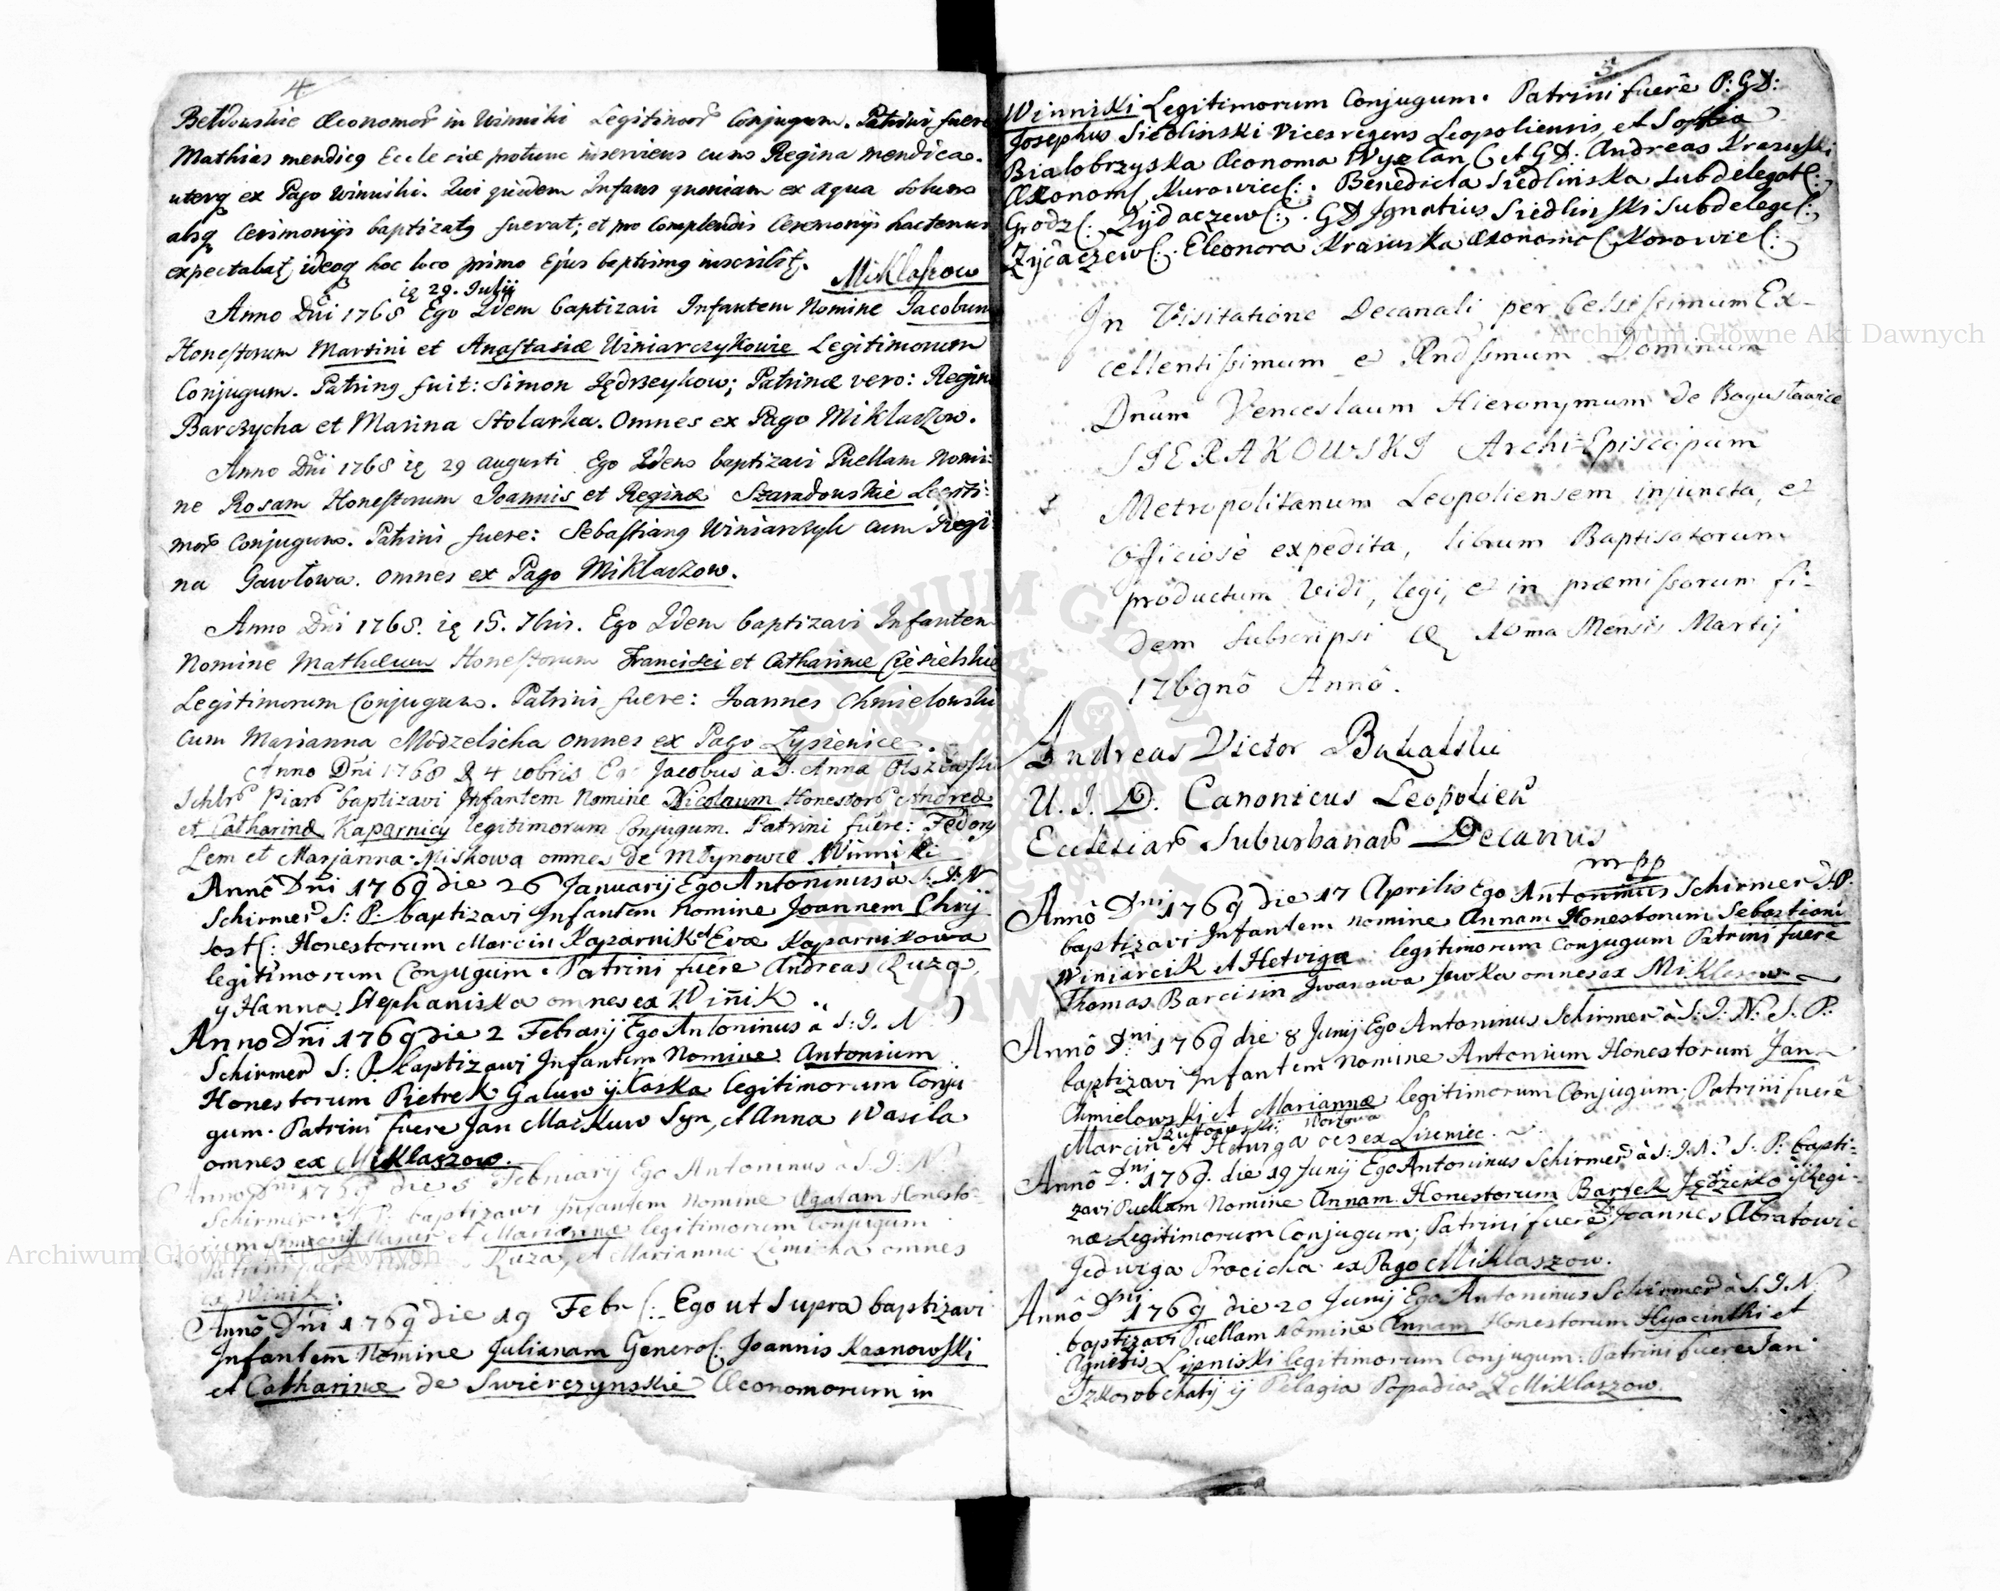 4
Beldowskie Œconomor in Winniki Legitimor Conjugum. Patrini fuere
Mathias mendicq Ecclesiæ protunc inserviens cum Regina mendica.
uterq ex Pago Winniki. Qui quidem Infans quoniam ex aqua solum
absq Cerimonijs baptizatq fuerat; et pro complendis Ceremonijs hactenus
expectabat, ideoq hoc loco primo Ejus baptismq inscribit.
Miklaszow
ię 29. Julij
Anno Dni 1768 Ego Idem baptizavi Infantem Nomine Jacobum
Honestorum Martini et Anastasiæ Winiarczykowie Legitimorum
Conjugum. Patrinq fuit: Simon Jędrzeykow; Patrinæ vero: Regina
Barczycha et Marina Stolarka. Omnes ex Pago Miklaszow.
Anno Dni 1768 ię 29 Augusti Ego Idem baptizavi Puellam Nomi-
ne Rosam Honestorum Joannis et Reginæ Szaradowskie Legiti-
mor Conjugum. Patrini fuere: Sebastianq Winiarczyk cum Regi-
na Gawłowa. omnes ex Pago Miklaszow.
Anno Dni 1768. ię 15. 7bris. Ego Idem baptizavi Infantem
Nomine Mathæum Honestorum Francisci et Catharinæ Ciesielskie
Legitimorum Conjugum. Patrini fuere: Joannes Chmielowski
cum Marianna Modzelicha omnes ex Pago Lysienice.
Anno Dni 1768 D 4 10bris Ego Jacobus a S. Anna Olszewski
Schlr Piar baptizavi Infantem Nomine Nicolaum Honestor Andreæ
et Catharinæ Kaparnicy legitimorum Conjugum. Patrini fuere: Fedory
Lem et Marjanna Miskowa omnes de Młynowce Winniki
Annô Dni 1769 die 26 Januarij Ego Antoninus à S. J. N
Schirmer S: P. baptizavi Infantem Nomine Joannem Chrij
sost(: Honestorum Marcin Kaparnik et Evæ Kaparnikowa
legitimorum Conjugum. Patrini fuere Andreas Ruza,
y Hanna Stephaniska omnes ex Winik
Anno Dni 1769 die 2 Febrarij Ego Antoninus à S: J. N
Schirmer S: P. baptizavi Infantem Nomine Antonium
Honestorum Pietrek Galuw ij Kaska legitimorum Conju
gum. Patrini fuere Jan Maćkuw Syn, et Anna Wasela
omnes ex Miklaszow.
Anno Dni 1769 die 5 Februarij Ego Antoninus à S: J: N
Schirmer S. P. baptizavi Infantem Nomine Agatam Honesto-
rum Szymon Mazur et Mariannæ legitimorum Conjugum
Patrini fuere Ruza, et Marianna Lemicha omnes
ex Winik.
Annô Dni 1769 die 19 Febr(: Ego ut Supra baptizavi
Infantem Nomine Julianam Generos(: Joannis Kasnowski
et Catharinæ de Swierczynskie Œconomorum in
5
Winniki Legitimorum Conjugum. Patrini fuerê P: GD:
Josephus Siedlinski Vicesregens Leopoliensis, et Sophia
Bialobrzyska Œconoma Wyzlan(: et GD: Andreas Krasuski
Œkonom(: Kurowice(:. Benedicta Siedlinska Subdelegat(:
Grodz(: Zydaczew(:. GD Jgnatius Siedlinski Subdeleg(:
Zyćaczew(:. Eleonora Krasuska Œkonoma(: Korowic(:
In Visitatione Decanali per Celsissimum Ex-
cellentissimum et Rndssmum Dominum
Dnum Venceslaum Hieronymum de Bogusławice
SIERAKOWSKI Archi-Episcopum
Metropolitanum Leopoliensem injuncta, et
officiosè expedita, librum Baptisatorum
productum vidi, legi, et in præmissorum fi-
dem subscripsi D 10ma Mensis Martij
1769nô Annô.
Andreas Victor Bukalski
U. J. D. Canonicus Leopolien
Ecclesiar Suburbanar Decanus
mpp
Annô Dni 1769 die 17 Aprilis Ego Antoninus Schirmer S.P.
baptizavi Infantem nomine Annam Honestorum Sebastiani
Winiarcik et Hetviga legitimorum Conjugum Patrini fuerê
Thomas Barcisin Jwanowa Jwoka omnes ex Miklaszow
Annô Dni 1769 die 8 Junij Ego Antoninus Schirmer à S: J: N: S. P:
baptizavi Infantem Nomine Antonium Honestorum Jan
Chmielowski et Mariannæ legitimorum Conjugum; Patrini fuerê
Marcin et Hetwiga oes ex Lisienic.
Annô Dni 1769. die 19 Junij Ego Antoninus Schirmer à S: J: N: S: P: bapti-
zavi Puellam Nomine Annam Honestorum Bartek Jędzieko ij Regi-
næ Legitimorum Conjugum; Patrini fuerê Joannes Abratowic
Jedwiga Procicha ex Pago Miklaszow.
Annô Dni 1769 die 20 Junij Ego Antoninus Schirmer à S. J. N
baptizavi Puellam Nomine Annam Honestorum Hyacinthi et
Agnetis Lipniski legitimorum Conjugum. Patrini fuere Jan
Szkorobchatij ij Pelagia Popadia D Miklaszow.
Archiwum Główne Akt Dawnych
Archiwum Główne Akt Dawnych